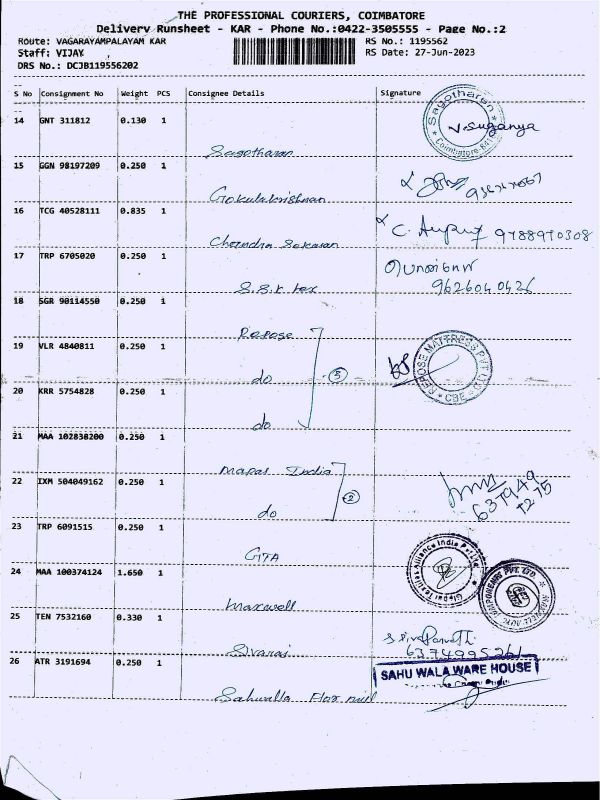 THE PROFESSIONAL COURIERS, COIMBATORE
Delivery Runsheet - KAR - Phone No.:0422-3505555 - Page No.:2
Route: VAGARAYAMPALAYAM KAR RS No.: 1195562
Staff: VIJAY RS Date: 27-Jun-2023
DRS No.: DCJB119556202
S No Consignment No Weight PCS Consignee Details Signature
14 GNT 311812 0.130 1
Sagotharan Sagotharan Coimbatore V.Suganya
15 GGN 98197209 0.250 1
Gokulakrishnan
16 TCG 40528111 0.835 1
Chandra Sekaran C. 9788970308
17 TRP 6705020 0.250 1
S.S.K tex 9626040426
18 SGR 90114550 0.250 1
Repose
19 VLR 4840811 0.250 1
do 3 REPOSE MATTRESS PVT LTD CBE
20 KRR 5754828 0.250 1
do
21 MAA 102838200 0.250 1
Mapas India
22 IXM 504049162 0.250 1
do 2 637949
7275
23 TRP 6091515 0.250 1
GTA Global Textiles Alliance India Pvt Ltd
24 MAA 100374124 1.650 1
Maxwell MAXWELL AUTO COMPONENTS PVT. LTD.
25 TEN 7532160 0.330 1
Sivaraj 6374995261
26 ATR 3191694 0.250 1
Sahuwalla Flex SAHU WALA WARE HOUSE